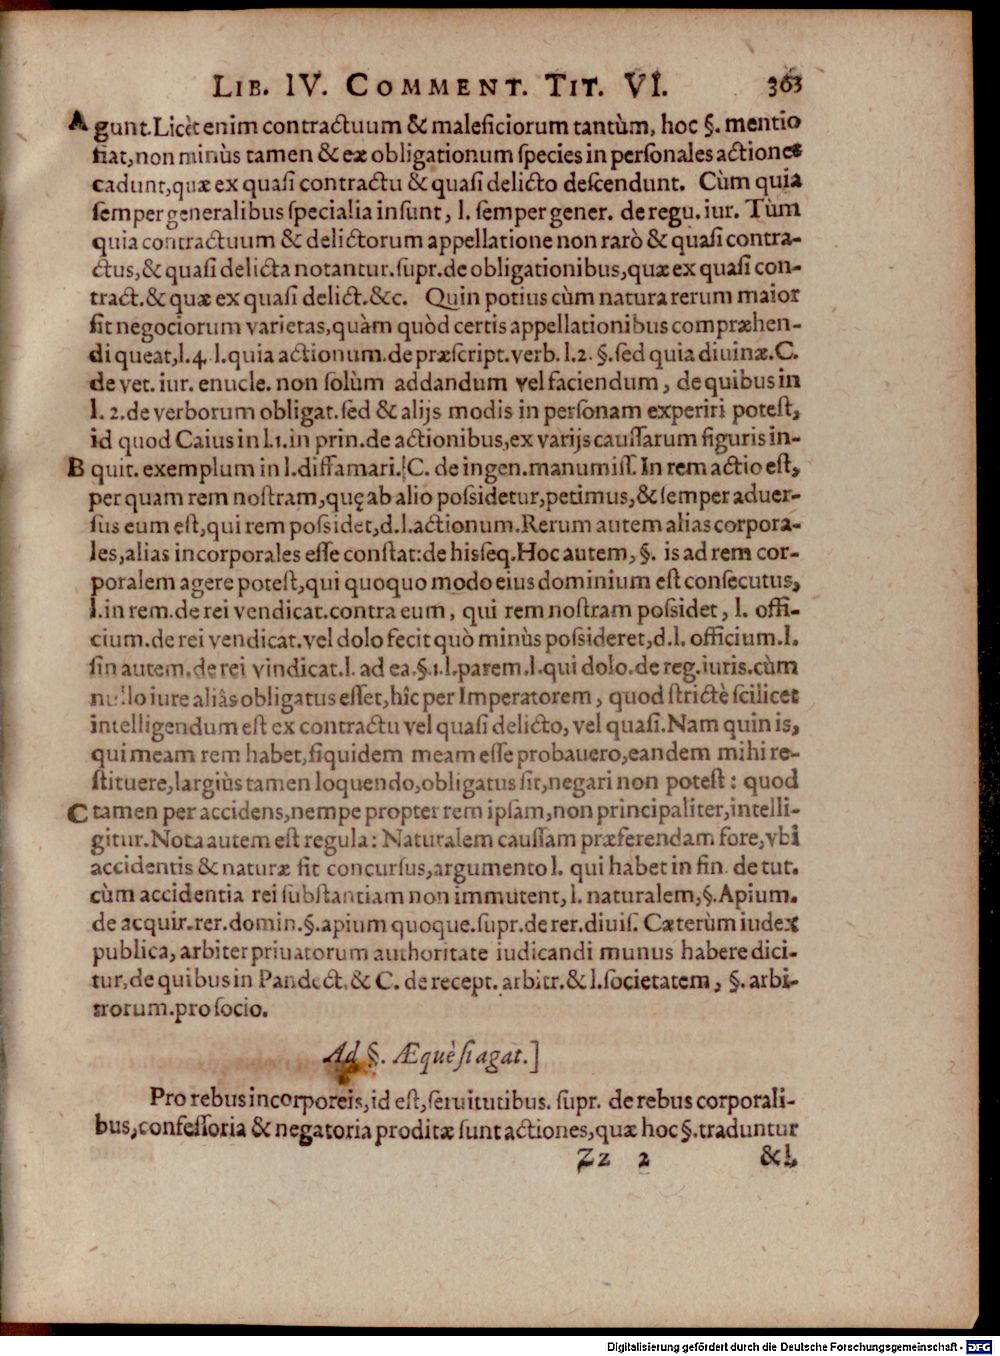 LIB. IV. COMMENT. TIT. VI. 363
A gunt. Licèt enim contractuum & maleficiorum tantùm, hoc §. mentio
fiat, non minùs tamen & ex obligationum species in personales actiones
cadunt, quæ ex quasi contractu & quasi delicto descendunt. Cùm quia
semper generalibus specialia insunt, l. semper gener. de regu. iur. Tùm
quia contractuum & delictorum appellatione non rarò & quasi contra-
ctus, & quasi delicta notantur. supr. de obligationibus, quæ ex quasi con-
tract. & quæ ex quasi delict. &c. Quin potius cùm natura rerum maior
sit negociorum varietas, quàm quòd certis appellationibus compræhen-
di queat, l. 4. l. quia actionum. de præscript. verb. l. 2. §. sed quia diuinæ. C.
de vet. iur. enucle. non solùm addandum vel faciendum, de quibus in
l. 2. de verborum obligat. sed & alijs modis in personam experiri potest,
id quod Caius in l. 1. in prin. de actionibus, ex varijs caussarum figuris in-
B quit. exemplum in l. diffamari. C. de ingen. manumiss. In rem actio est,
per quam rem nostram, quę ab alio possidetur, petimus, & semper aduer-
sus eum est, qui rem possidet, d. l. actionum. Rerum autem alias corpora-
les, alias incorporales esse constat: de his seq. Hoc autem, §. is ad rem cor-
poralem agere potest, qui quoquo modo eius dominium est consecutus,
l. in rem. de rei vendicat. contra eum, qui rem nostram possidet, l. offi-
cium. de rei vendicat. vel dolo fecit quò minùs possideret, d. l. officium. l.
sin autem. de rei vindicat. l. ad ea. §. 1. l. parem. l. qui dolo. de reg. iuris. cùm
nullo iure aliâs obligatus esset, hîc per Imperatorem, quod strictè scilicet
intelligendum est ex contractu vel quasi delicto, vel quasi. Nam quin is,
qui meam rem habet, siquidem meam esse probauero, eandem mihi re-
stituere, largiùs tamen loquendo, obligatus sit, negari non potest: quod
C tamen per accidens, nempe propter rem ipsam, non principaliter, intelli-
gitur. Nota autem est regula: Naturalem caussam præferendam fore, vbi
accidentis & naturæ sit concursus, argumento l. qui habet in fin. de tut.
cùm accidentia rei substantiam non immutent, l. naturalem, §. Apium.
de acquir. rer. domin. §. apium quoque. supr. de rer. diuis. Cæterùm iudex
publica, arbiter priuatorum authoritate iudicandi munus habere dici-
tur, de quibus in Pandect. & C. de recept. arbitr. & l. societatem, §. arbi-
trorum. pro socio.
Ad §. Æquè si agat.]
Pro rebus incorporeis, id est, seruitutibus. supr. de rebus corporali-
bus, confessoria & negatoria proditæ sunt actiones, quæ hoc §. traduntur
Zz 2 & l.
Digitalisierung gefördert durch die Deutsche Forschungsgemeinschaft - DFG